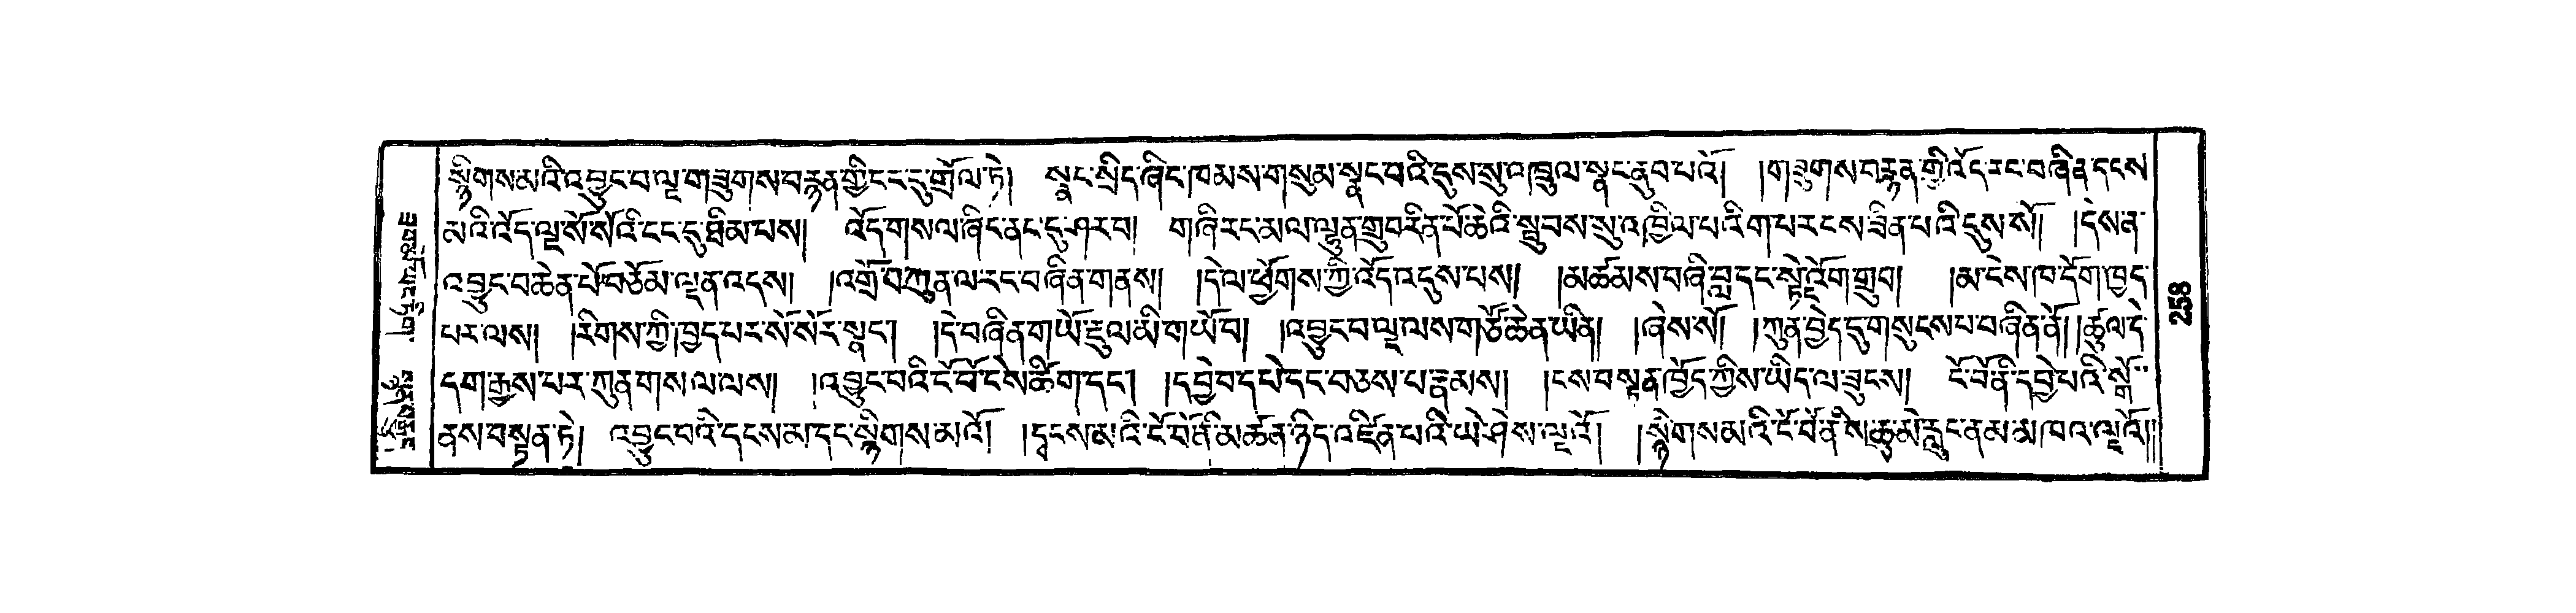 སྙིགས་མའི་འབྱུང་བ་ལྔ་གཟུགས་བརྙན་གྱི་ངང་དུ་གྲོལ་ཏེ། སྣང་སྲིད་ཞིང་ཁམས་གསུམ་སྣང་བའི་དུས་སུ་འཁྲུལ་སྣང་ནུབ་པའོ། །གཟུགས་བརྙན་གྱི་འོད་རང་བཞིན་དངས
མའི་འོད་ལྔ་སོ་སོའི་ངང་དུ་ཐིམ་པས། འོད་གསལ་ཞིང་ནང་དུ་ཤར་བ། གཞི་རང་མལ་ལྷུན་གྲུབ་རིན་པོ་ཆེའི་སྦུབས་སུ་འཁྱིལ་པའི་ག་པར་ངས་ཟིན་པའི་དུས་སོ། །དེས་ན་
འབྱུང་བ་ཆེན་པོ་བཅོམ་ལྡན་འདས། །འགྲོ་བ་ཀུན་ལ་རང་བཞིན་གནས། །དེ་ལ་ཕྱོགས་ཀྱི་འོད་འདུས་པས། །མཚམས་བཞི་བླ་དང་སྟེ་འོག་གྲུབ། །མ་ངེས་ཁ་དོག་ཁྱད་
པར་ལས། །རིགས་ཀྱི་ཁྱད་པར་སོ་སོར་སྣང་། །དེ་བཞིན་གཡོ་རྡུལ་མི་གཡོ་བ། །འབྱུང་བ་ལྔ་ལས་གཙོ་ཆེན་ཡིན། །ཞེས་སོ། །ཀུན་བྱེད་དུ་གསུངས་པ་བཞིན་ནོ། །ཚུལ་དེ་
དག་རྒྱས་པར་ཀུན་གསལ་ལས། །འབྱུང་བའི་ངོ་བོ་ངེས་ཚིག་དང་། །དབྱེ་བ་དཔེ་དང་བཅས་པ་རྣམས། །ངས་བསྟན་ཁྱོད་ཀྱིས་ཡིད་ལ་ཟུངས། ངོ་བོ་ནི་དབྱེ་པའི་སྒོ་
ནས་བསྟན་ཏེ། འབྱུང་བའི་དངས་མ་དང་སྙིགས་མའོ། །དྭངས་མའི་ངོ་བོ་ནི་མཚན་ཉིད་འཛིན་པའི་ཡེ་ཤེས་ལྔའོ། །སྙིགས་མའི་ངོ་བོ་ནི་ས་ཆུ་མེ་རླུང་ནམ་མཁའ་ལྔའོ།།
258